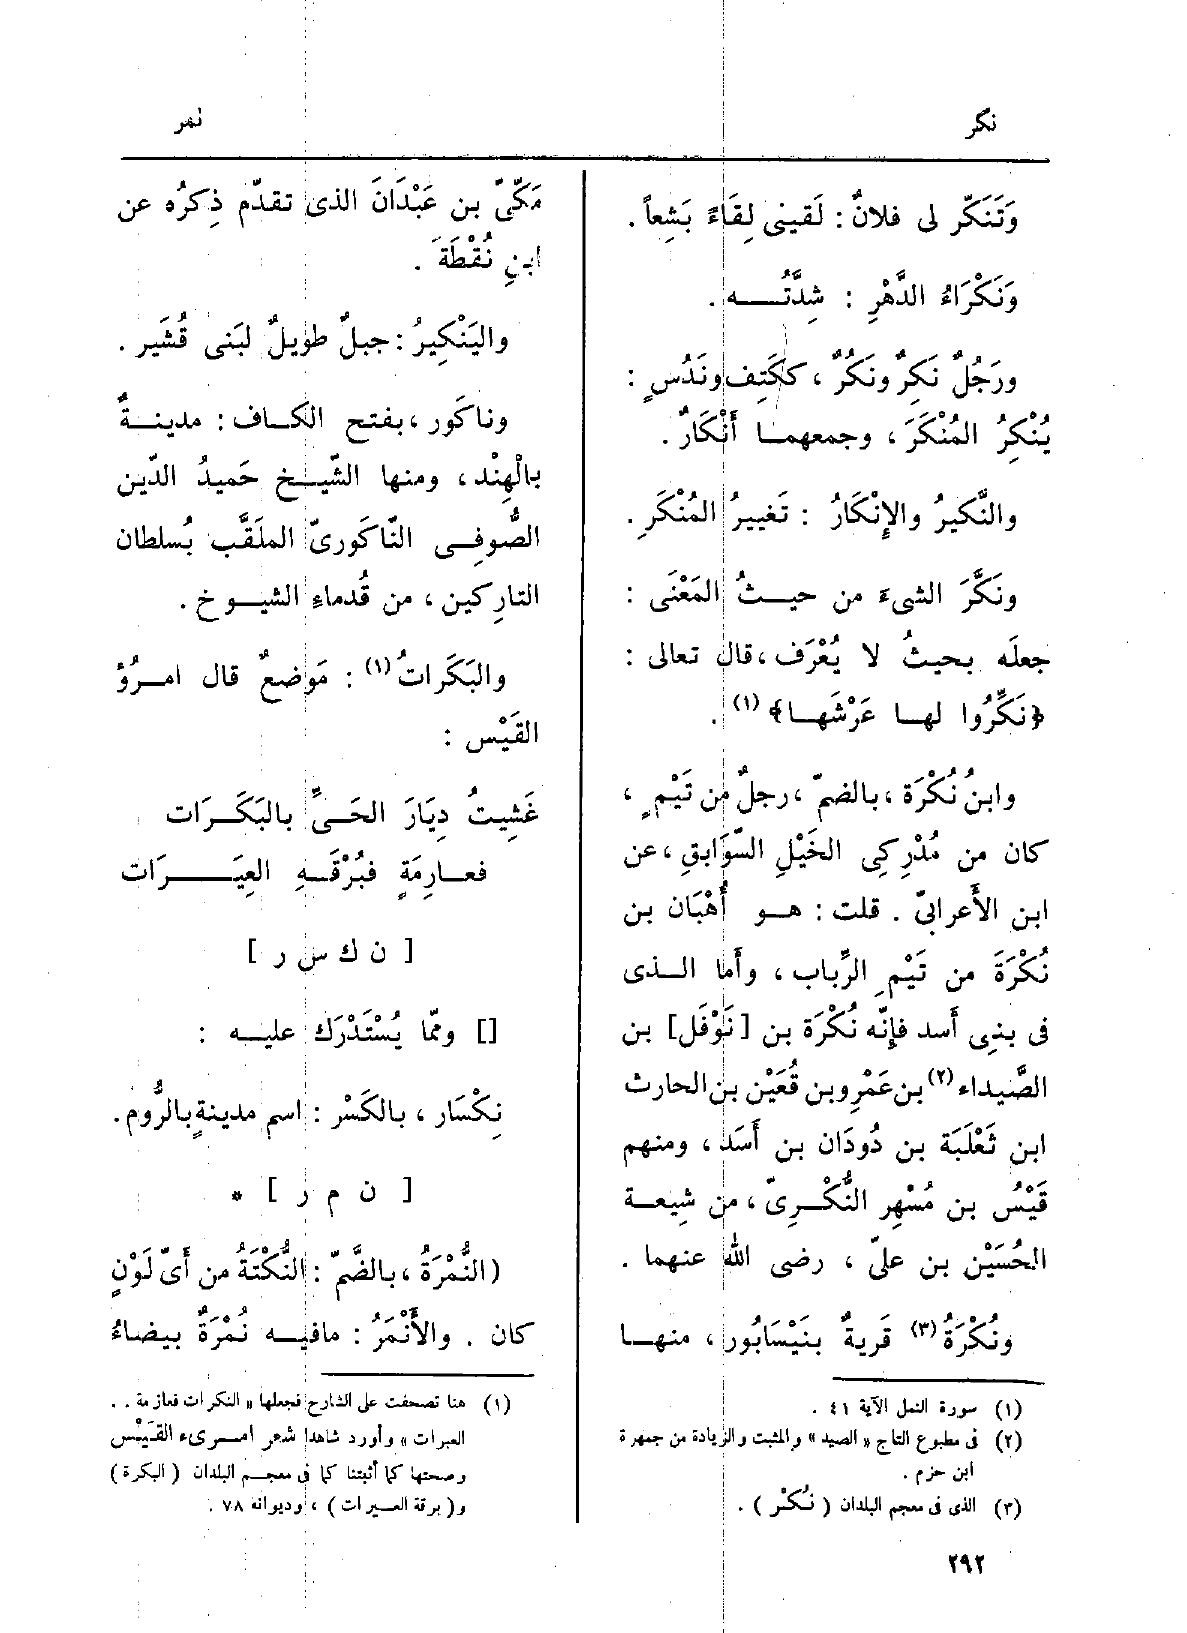 نكر
نمر
وَتَنَكّر لى فلانٌ : لَقينى لِقَاءً بَشِعاً .
وَنَكْرَاءُ الدَّهْرِ : شِدَّتُـــه .
ورَجُلٌ نَكِرٌ ونَكُرٌ ، ككَتِف ونَدُسٍ :
يُنْكِرُ المُنْكَرَ ، وجمعهمـا أَنْكَارٌ .
والنَّكيرُ والإِنْكَارُ : تَغييرُ المُنْكَرِ .
ونَكَّرَ الشىءَ من حيـثُ المَعْنَى :
جعلَه بحيثُ لا يُعْرَف ، قال تعالى :
﴿نَكِّرُوا لهـا عَرْشَهـا﴾ (١) .
وابنُ نُكْرَة ، بالضمّ ، رجلٌ من تَيْمٍ ،
كان من مُدْرِكِى الخَيْلِ السَّوَابقِ ، عن
ابن الأَعرابىّ . قلت : هـو أُهْبَان بن
نُكْرَةَ من تَيْمِ الرِّباب ، وأَما الـذى
فى بنِى أَسد فإِنّه نُكْرَة بن [نَوْفَل] بن
الصَّيداء (٢) بن عَمْرو بن قُعَيْن بن الحارث
ابن ثَعْلَبَة بن دُودَان بن أَسَد ، ومنهم
قَيْسُ بن مُسْهِر النُّكْـرىّ ، من شِيعـة
الحُسَيْن بن علىّ ، رضى الله عنهما .
ونُكْرَةُ (٣) قريةٌ بنَيْسَابُور ، منهـا
(١) سورة النمل الآية ٤١ .
(٢) فى مطبوع التاج « الصيد » والمثبت والزيادة من جمهرة
ابن حزم .
(٣) الذى فى معجم البلدان ( نُكْر ) .
مَكّىّ بن عَبْدَانَ الذى تقدّم ذِكرُه عن
ابنِ نُقْطَةَ .
واليَنْكِيرُ : جبلٌ طويلٌ لبَنى قُشَير .
وناكَور ، بفتح الكـاف : مدينـةٌ
بالْهِنْد ، ومنها الشّيـخ حَميدُ الدّين
الصُّوفِـى النّاكَورىّ الملَقَّب بُسلطان
التارِكين ، من قُدماءِ الشيـوخ .
والبَكَراتُ (١) : مَوضعٌ قال امـرُؤ
القَيْس :
غَشِيتُ دِيَارَ الحَـىِّ بالبَكَـرَات
فعـارِمَةٍ فبُرْقَـهِ العِيَـــرَات
[ ن ك س ر ]
[] وممّا يُسْتَدْرَك عليـه :
نِكْسَار ، بالكَسْر : اسم مدينةٍ بالرُّوم .
[ ن م ر ] *
(النُّمْرَةُ ، بالضَّمّ : النُّكْتَةُ من أَىّ لَوْنٍ
كان . والأَنْمَرُ : مافيـه نُمْرَةٌ بيضاءُ
(١) هنا تصحفت على الشارح فجعلها « النكرات فعازمة . .
العبرات » وأورد شاهدا شعر امـرىء القَـيْس
وصحتها كما أثبتنا كما فى معجـم البلدان ( البكرة )
و( برقة العـيرات ) ، وديوانه ٧٨ .
٢٩٢